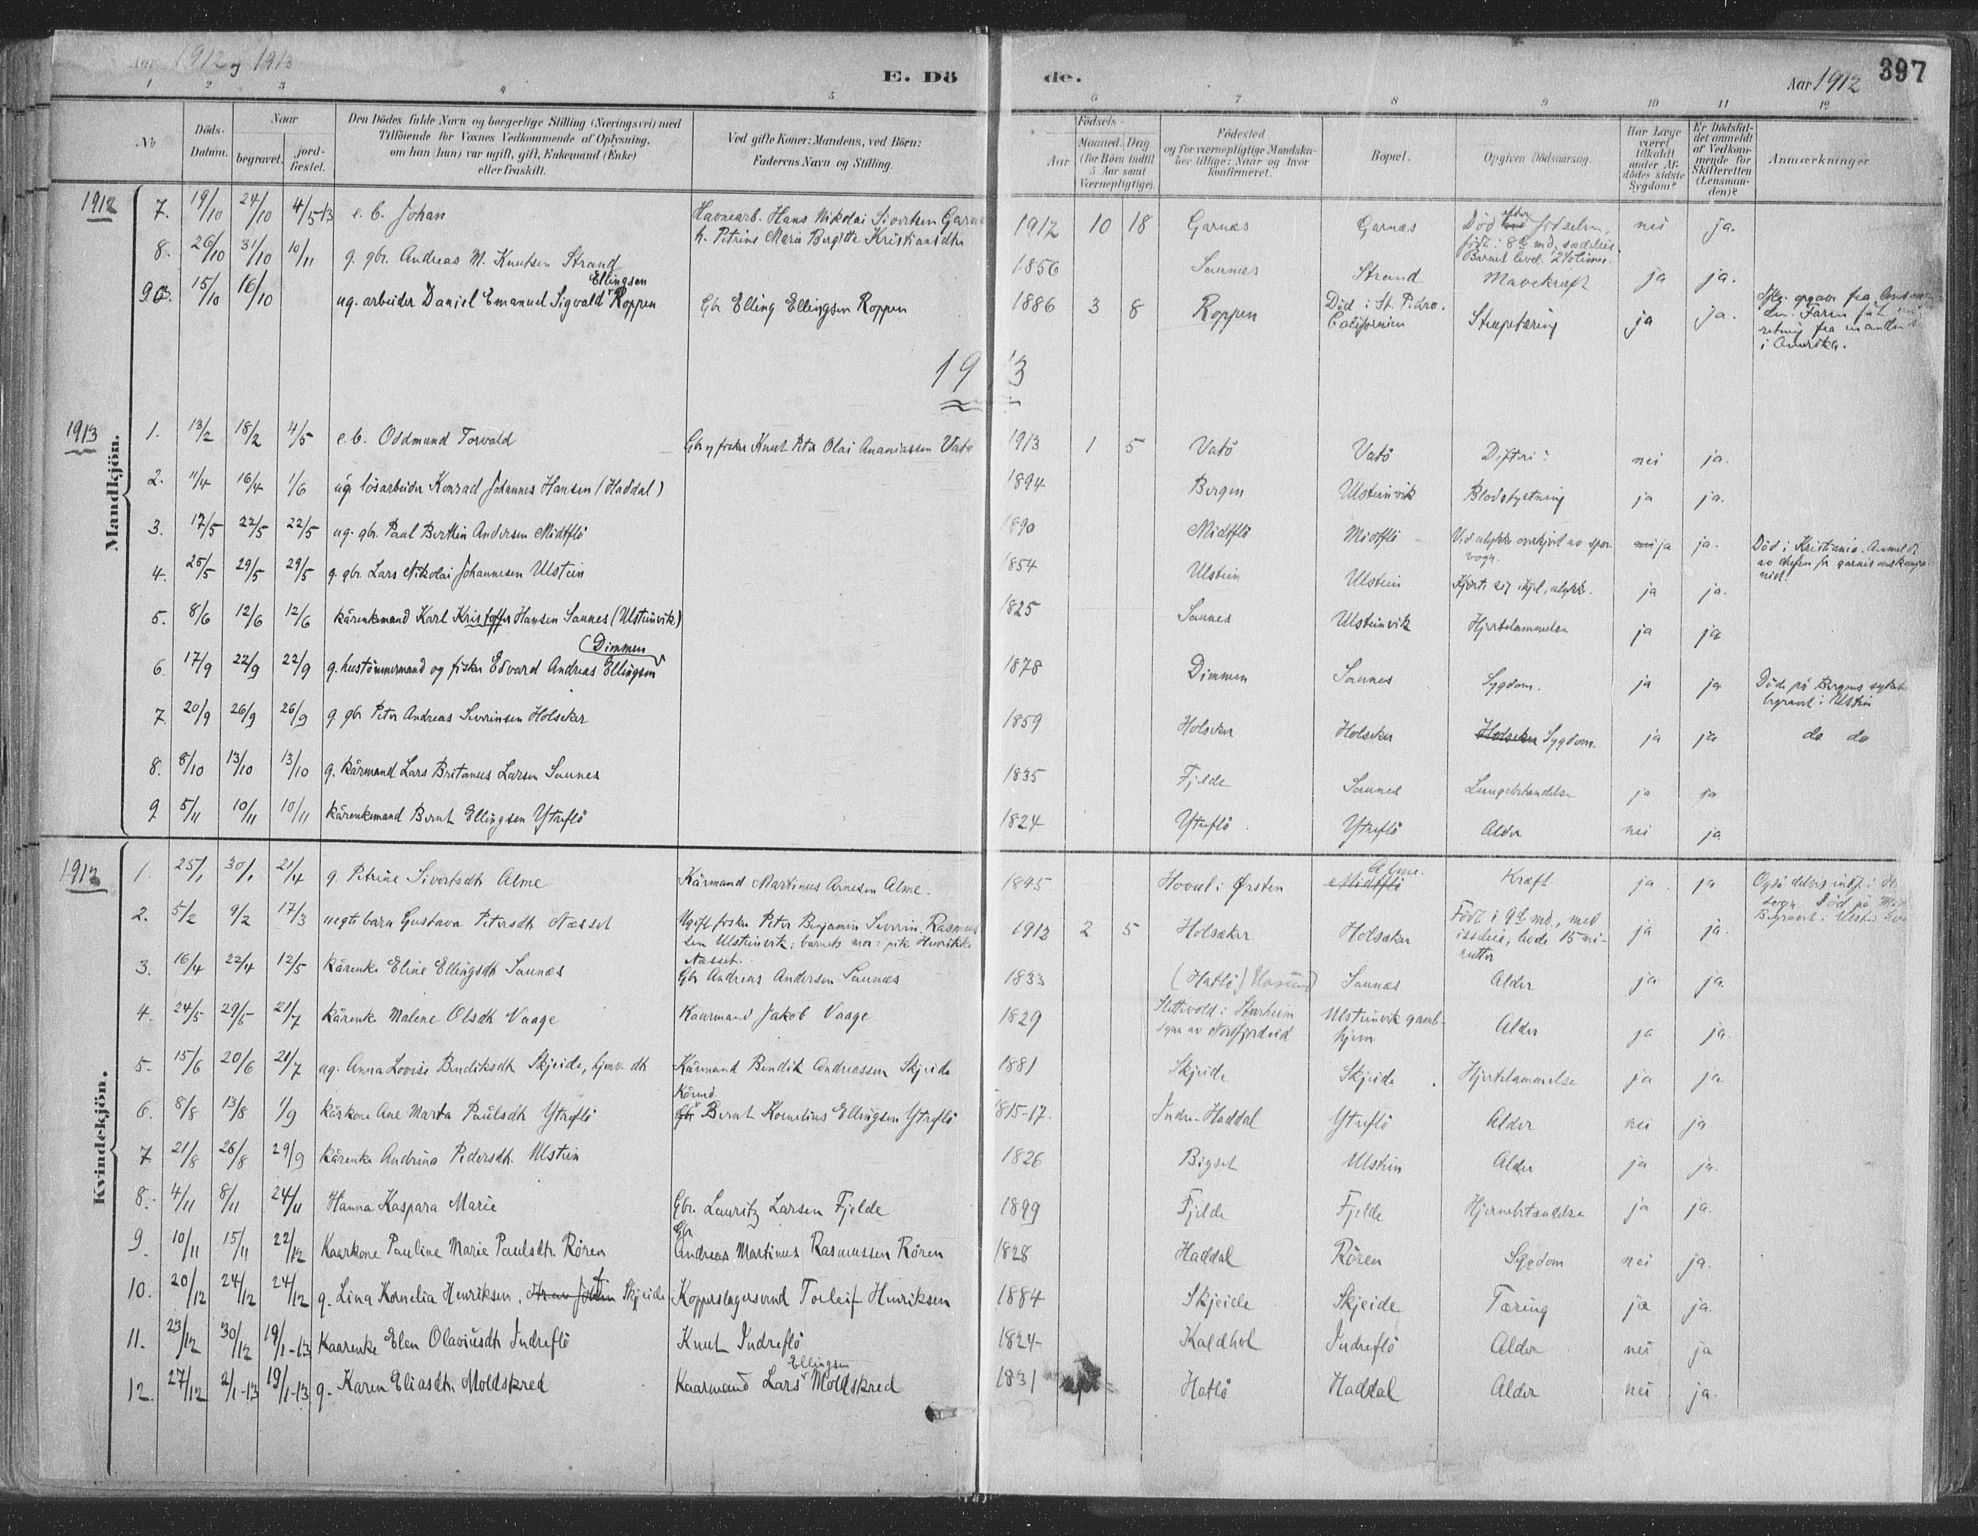 Aar 1912 og 1913
E. Döde.
Aar 1912
397
1 2 3 4 5 6 7 8 9 10 11 12
No
Döds-Datum.
Naar
begravet.
jord-fæstet.
Den Dödes fulde Navn og borgerlige Stilling (Næringsvei) med
Tilföiende for Voxnes Vedkommende af Oplysning,
om han (hun) var ugift, gift, Enkemand (Enke)
eller fraskilt.
Ved gifte Koner: Mandens, ved Börn:
Faderens Navn og Stilling.
Födsels-
Aar
Maaned. Dag
(for Börn indtil
5 Aar samt
Værnepligtige).
Födested
og for værnepligtige Mandska-
ber tillige: Naar og hvor
konfirmeret.
Bopæl.
Opgiven Dödsaarsag.
Har Læge
været
tilkaldt
under Af-
dödes sidste
Sygdom?
Er Dödsfal-
det anmeldt
af Vedkom-
mende for
Skifteretten
(Lensman-
den)?
Anmærkninger
Mandkjön.
1912
7. 19/10 24/10 4/5 13 e. b. Johan Havnearb. Hans Nikolai Sivertsen Garnes 1912 10 18 Garnæs Garnæs Död efter födselen, nei ja.
h. Petrine Marie Bergitte Kristiansdtr födt i 8de md, sædeleie.
Barnet leved. 2 1/2 timer.
8. 26/10 31/10 10/11 g. gbr. Andreas M. Knutsen Strand 1856 Saunes Strand Mavekræft ja ja.
9. 15/10 16/10 ug. arbeider Daniel Emanuel Sigvald Ellingsen Roppen Gbr Elling Ellingsen Roppen 1886 3 8 Roppen Död i St. Pedro. Californien Strupetæring ja ja.
i Amerika.
1913
1913
1. 13/2 18/2 4/5 e. b. Oddmund Torvald Gbr og fisker Knut Peter Olai Ananiassen Vatö 1913 1 5 Vatö Vatö Difteri nei ja.
2. 11/4 16/4 1/6 ug lösarbeider Konrad Johannes Hansen (Haddal) 1894 Bergen Ulsteinvik Blodstyrtning ja ja.
3. 17/5 22/5 22/5 ug. gbr. Paul Bertin Andersen Midtflö 1890 Midtflö Midtflö Ved ulykke overkjört av sporvogn. nei ja ja. Död i Kristiania. Anmeldt
av chefen for garnisonskompaniet.
4. 25/5 29/5 29/5 g. gbr Lars Nikolai Johannesen Ulstein 1854 Ulstein Ulstein ja ja.
5. 8/6 12/6 12/6 kårenkemand Karl Kristoffer Hansen Saunes (Ulsteinvik) 1825 Saunes Ulsteinvik Hjertelammelse ja ja
6 17/9 22/9 22/9 g. hustömmermand og fisker Edvard Andreas Ellingsen (Dimmen 1878 Dimmen Saunes Sygdom. ja ja Döde på Bergens sykeh.
begravet i Ulstein
7. 20/9 26/9 26/9 g gbr Peter Andreas Severinsen Holseker 1859 Holseker Holseker Holseker Sygdom. ja ja do do
8. 8/10 13/10 13/10 g. kårmand Lars Britanus Larsen Saunes 1835 Fjelde Saunes Lungebetændelse ja ja
9 5/11 10/11 10/11 kårenkemand Bernt Ellingsen Ytreflö 1824 Ytreflö Ytreflö Alder nei ja
Kvindekjön.
1912
1. 25/1 30/1 21/4 g. Petrine Sivertsdtr Alme Kårmand Martinus Arnesen Alme. 1845 Hovset i Örsten Midtflö Alme. Kræft ja ja
2. 5/2 9/2 17/3 uegte barn Gustava Petersdtr Næsset Ugift fisker Peter Benjamin Severin Rasmus-
sen Ulsteinvik; barnets mor: pike Henrikke
Næsset. 1912 2 5 Holsæker Holsæker Födt i 9de md, med
issefeie, levde 15 mi-
nutter ja ja.
3. 16/4 22/4 12/5 kårenke Eline Ellingsdtr Saunæs Gbr Andreas Andersen Saunæs 1833 (Hatlö) Saunæs Alder ja ja.
4. 24/5 29/5 21/7 kårenke Malene Olsdtr Vaage Kaarmand Jakob Vaage 1829 i Starheim
sogn av Nordfjordeid Ulsteinvik gamlehjem Alder ja ja.
5. 15/6 20/6 21/7 ug. Anna Lovise Bendiksdtr Skjeide, hjmv. dtr Kårmand Bendik Andreassen Skjeide 1881 Skjeide Skjeide Hjertelammelse ja ja
6. 8/8 13/8 1/9 kårkone Ane Marta Paulsdtr Ytreflö Kårmd Gbr Bernt Kornelius Ellingsen Ytreflö 1815-17. Indre-Haddal Ytreflö Alder nei ja
7 21/8 26/8 29/9 kårenke Andrina Pedersdtr. Ulstein 1826 Bigset Ulstein Alder ja ja.
8. 4/11 8/11 24/11 Hanna Kaspara Marie Gbr. Lauritz Larsen Fjelde 1899 Fjelde Fjelde Hjernebetændelse ja ja.
9. 10/11 15/11 22/12 Kaarkone Pauline Marie Paulsdtr. Rören Gbr Andreas Martinus Rasmussen Rören 1828 Haddal Rören Sygdom nei ja.
10. 20/12 24/12 24/12 g. Lina Kornelia Henriksen, Skjeide Kopperslagersvend Torleif Henriksen 1884 Skjeide Skjeide Tæring ja ja.
11. 23/12 30/12 19/1-13 Kaarenke Elen Olaviusdtr Indreflö Knut Indreflö 1824 Kaldhol Indreflö Alder nei ja
12. 27/12 2/1-13 19/1-13 g. Karen Eliasdtr. Moldskred Kaarmand Lars Ellingsen Moldskred 1831 Hatlö Haddal Alder nei ja.